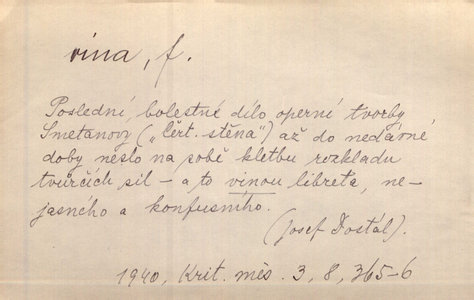 vina, f.
Poslední, bolestné dílo operní tvorby
Smetanovy („Čert. stěna“) až do nedávné
doby neslo na sobě kletbu rozkladu
tvůrčích sil – a to vinou libreta, ne-
jasného a konfusního.
(Josef Dostál).
1940, Krit. měs. 3, 8, 365–6